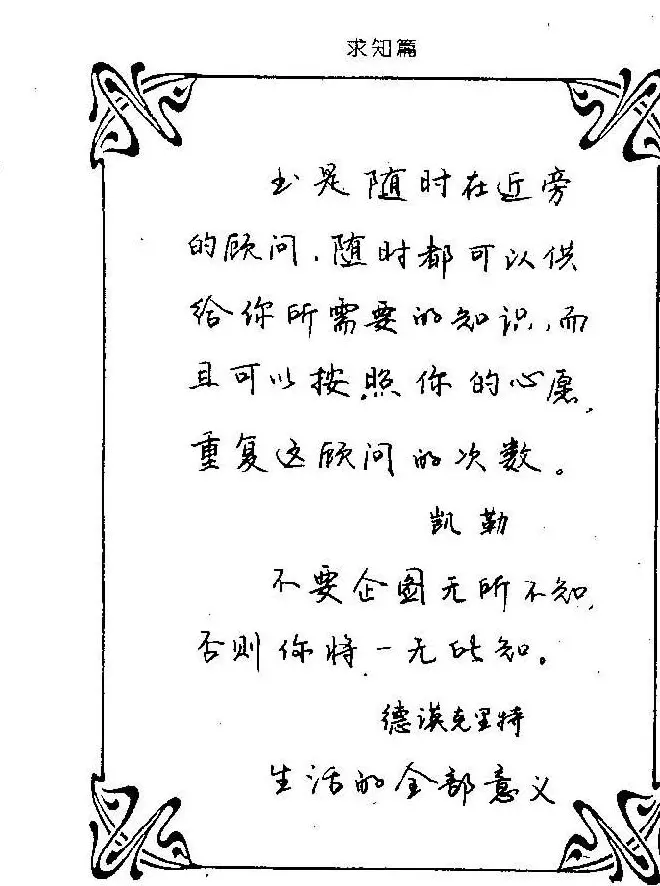 求知篇
书是随时在近旁
的顾问,随时都可以供
给你所需要的知识,而
且可以按照你的心愿,
重复这顾问的次数。
凯勒
不要企图无所不知,
否则你将一无所知。
德谟克里特
生活的全部意义